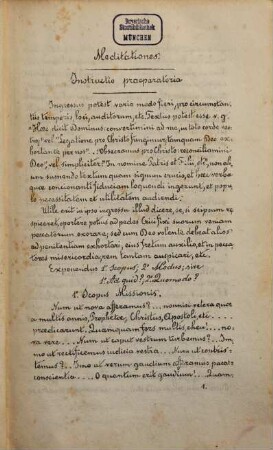 Bayerische
Staatsbibliothek
MÜNCHEN
Meditationes.
Instructio praeparatoria
Ingressus potest vario modo fieri, pro circumstan-
tiis temporis, loci, auditorum, etc. Textus potest esse v. g.
"Haec dicit Dominus: convertimini ad me in toto corde vestro,
vel "Legatione pro Christo fungimur, tamquam Deo ex-
hortante per nos". "Obsecramus pro Christo: reconciliamini
Deo", vel simpliciter: "In nomine Patris et Filii, etc.", non ali-
um sumendo textum quam signum crucis, et haec verba
quae concionanti fiduciam loquendi ingerunt, et popu-
lo necessitatem et utilitatem audiendi.
Utile erit in ipso ingressu illud dicere, se, si seipsum re-
spiceret, oportere potius ad pedes Crucifixi suorum veniam
peccatorum exorare, sed cum Deo volente debeat alios
ad poenitentiam exhortari, eius fretum auxilio, et in pecca-
tores misericordia, rem tantam auspicari, etc.
Exponendus 1° Scopus; 2° Modus; sive
1° Ad quid? 2° Quomodo?
1° Scopus Missionis.
Num ut nova afferamus? ... nonnisi vetera quae
a multis annis, Prophetae, Christus, Apostoli, etc.
praedicarunt. Quamquam fors multis, eheu! ... no-
va vere ... Num ut caput vestrum turbemus? ... Im-
mo ut rectificemus iudicia vestra ... Num ut contris-
temus? ... Imo ut verum gaudium afferamus pacatis
conscientiis ... O quantum erit gaudium! ... Quam-
1.